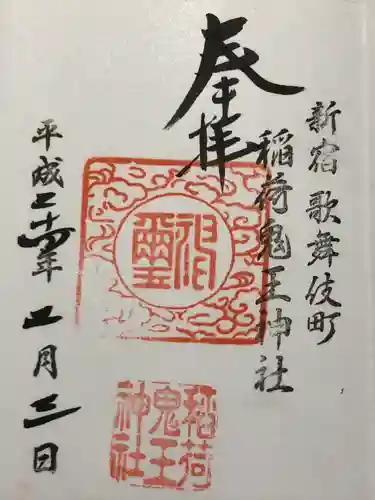 新宿 歌舞伎町
稲荷鬼王神社
奉拝
神璽
稲荷
鬼王
神社
平成二十年 月三日